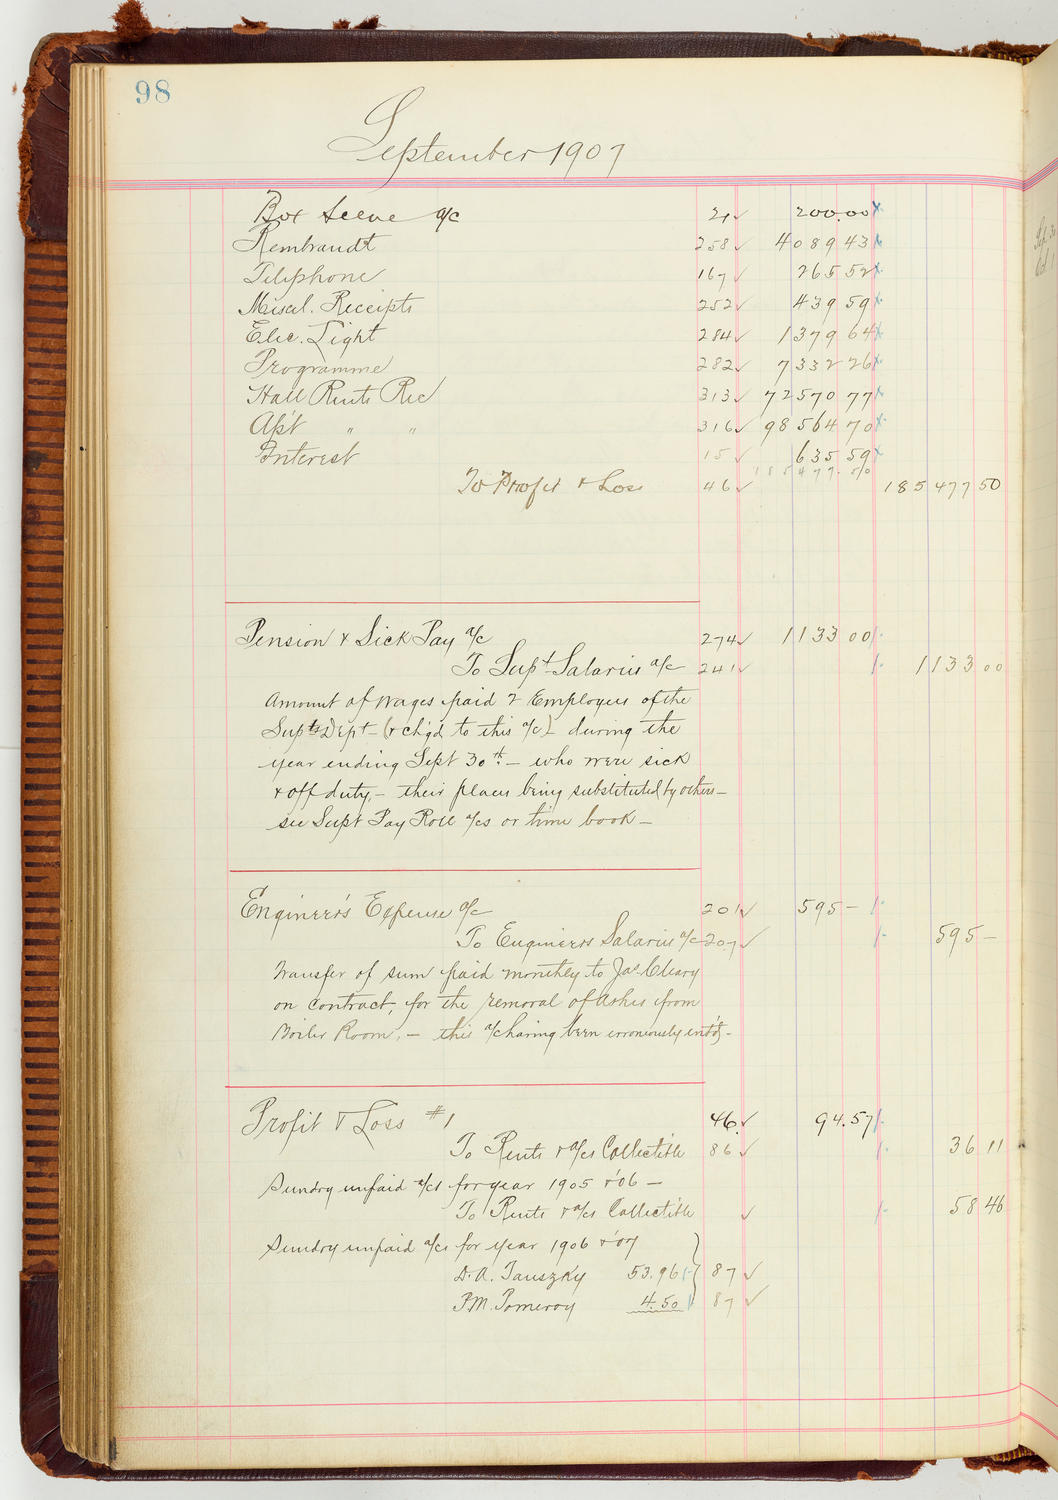 98
September 1907
Box Scene a/c 21 ✓ 200.00 x
Rembrandt 258 ✓ 4089 43 x
Telephone 167 ✓ 265 52 x
Miscel. Receipts 252 ✓ 439 59 x
Elec. Light 284 ✓ 1379 64 x
Programme 282 ✓ 7332 26 x
Hall Rents Rec 313 ✓ 72570 77 x
Apt " " 316 ✓ 98564 70 x
Interest 15 ✓ 635 59 x
185477.50
To Profit & Loss 46 ✓ 185477 50
Pension & Sick Pay a/c 274 ✓ 1133 00
To Supt Salaries a/c 241 ✓ 1133 00
Amount of wages paid 2 Employees of the
Supts Dept - (& ch'gd to this a/c) - during the
year ending Sept 30th. - who were sick
& off duty, - their places being substituted by others -
see Supt Pay Roll a/cs or time book -
Engineer's Expense a/c 201 ✓ 595 -
To Engineers Salaries a/c 207 ✓ 595 -
Transfer of sum paid monthly to Jas. Cleary
on contract, for the removal of Ashes from
Boiler Room, - this a/c having been erroneously ent'd -
Profit & Loss #1 46 ✓ 94.57
To Rents & a/cs Collectible 86 ✓ 36 11
Sundry unpaid a/cs for year 1905 & '06 -
To Rents & a/cs Collectible ✓ 58 46
Sundry unpaid a/cs for year 1906 & '07
D. A. Tauszky 53.96 87 ✓
P.M. Pomeroy 4.50 87 ✓